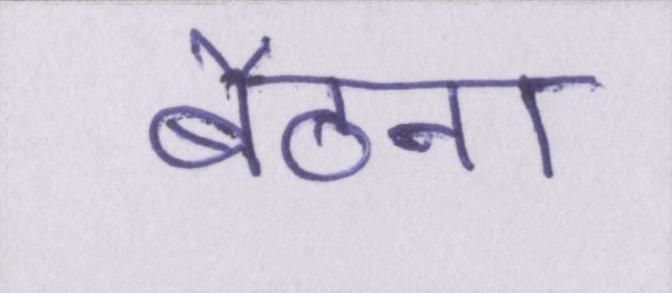 बैठना